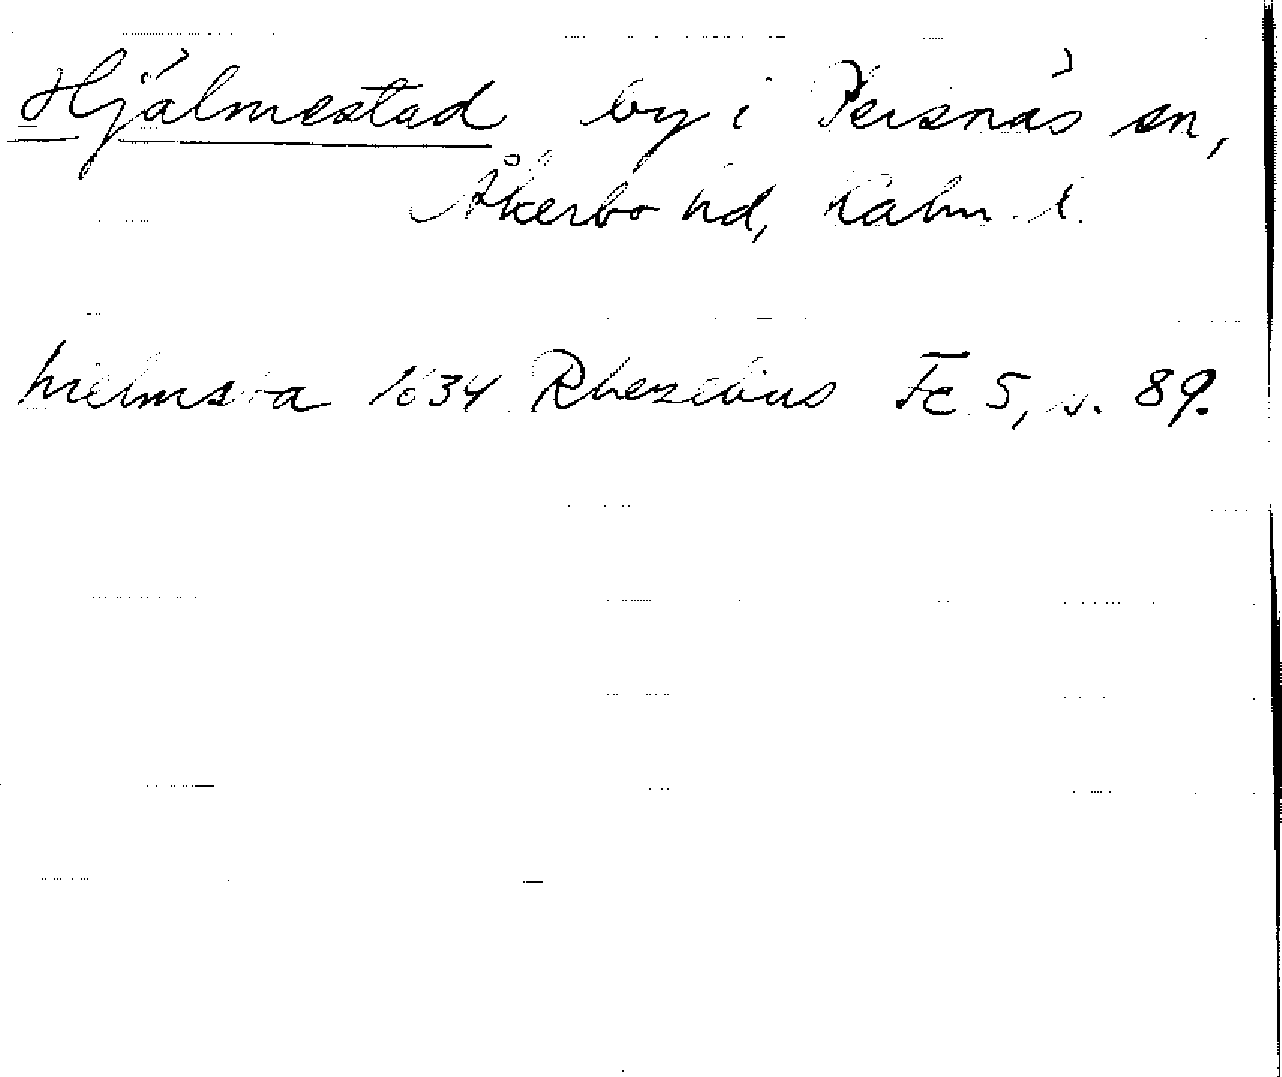 Hjälmestad by i Persnäs sn,
Åkerbo hd, Kalm. l.
hielmsta 1634 Rhezelius Fc 5, s. 89.